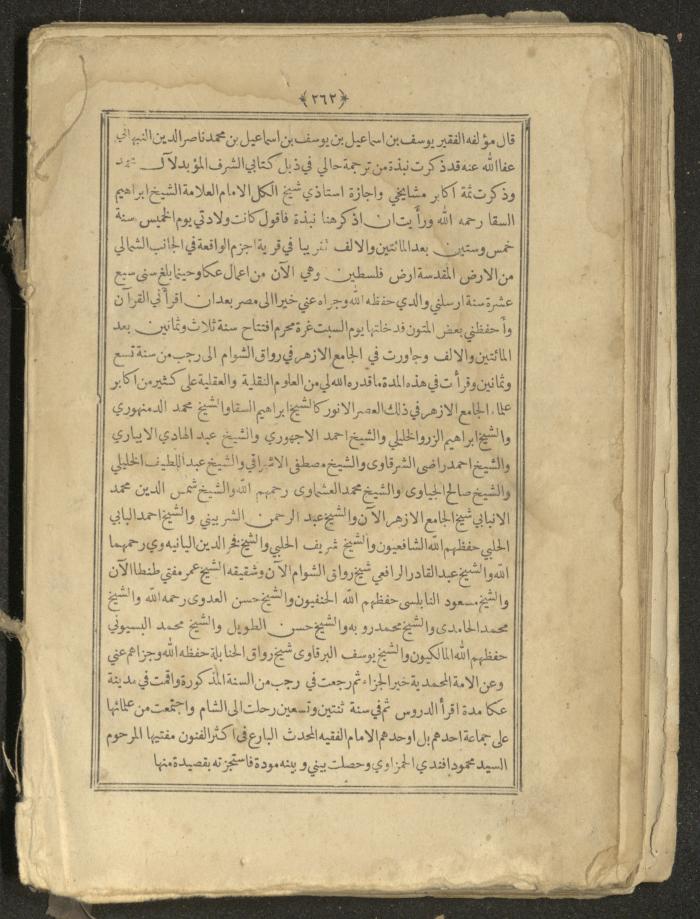 ﴿٢٦٢﴾
قال مؤلفه الفقير يوسف بن اسماعيل بن يوسف بن اسماعيل بن محمد ناصر الدين النبهاني
عفا الله عنه قد ذكرت نبذة من ترجمة حالي في ذيل كتابي الشرف المؤبد لآل محمد
وذكرت ثمة اكابر مشايخي واجازة استاذي شيخ الكل الامام العلامة الشيخ ابراهيم
السقا رحمه الله ورأيت ان اذكر هنا نبذة فاقول كانت ولادتي يوم الخميس سنة
خمس وستين بعد المائتين والالف تقريبا في قرية اجزم الواقعة في الجانب الشمالي
من الارض المقدسة ارض فلسطين وهي الآن من اعمال عكا وحينما بلغ سني سبع
عشرة سنة ارسلني والدي حفظه الله وجزاه عني خيرا الى مصر بعد ان اقرأني القرآن
وأحفظني بعض المتون فدخلتها يوم السبت غرة محرم افتتاح سنة ثلاث وثمانين بعد
المائتين والالف وجاورت في الجامع الازهر في رواق الشوام الى رجب من سنة تسع
وثمانين وقرأت في هذه المدة ما قدره الله لي من العلوم النقلية والعقلية على كثير من اكابر
علماء الجامع الازهر في ذلك العصر الانور كالشيخ ابراهيم السقا والشيخ محمد الدمنهوري
والشيخ ابراهيم الزرو الخليلي والشيخ احمد الاجهوري والشيخ عبد الهادي الابياري
والشيخ احمد راضى الشرقاوى والشيخ مصطفى الاشراقي والشيخ عبد اللطيف الخليلي
والشيخ صالح الجياوى والشيخ محمد العشماوى رحمهم الله والشيخ شمس الدين محمد
الانبابي شيخ الجامع الازهر الآن والشيخ عبد الرحمن الشربيني والشيخ احمد البابي
الحلبي حفظهم الله الشافعيون والشيخ شريف الحلبي والشيخ فخر الدين اليانيه وي رحمهما
الله والشيخ عبد القادر الرافعي شيخ رواق الشوام الآن وشقيقه الشيخ عمر مفتي طنطا الآن
والشيخ مسعود النابلسى حفظهم الله الحنفيون والشيخ حسن العدوى رحمه الله والشيخ
محمد الحامدى والشيخ محمد روبه والشيخ حسن الطويل والشيخ محمد البسيوني
حفظهم الله المالكيون والشيخ يوسف البرقاوى شيخ رواق الحنابلة حفظه الله وجزاهم عني
وعن الامة المحمدية خير الجزاء ثم رجعت في رجب من السنة المذكورة واقمت في مدينة
عكا مدة اقرأ الدروس ثم في سنة ثنتين وتسعين رحلت الى الشام واجتمعت من علمائها
على جماعة احدهم بل اوحدهم الامام الفقيه المحدث البارع في اكثر الفنون مفتيها المرحوم
السيد محمود افندي الحمزاوي وحصلت بيني وبينه مودة فاستجزته بقصيدة منها